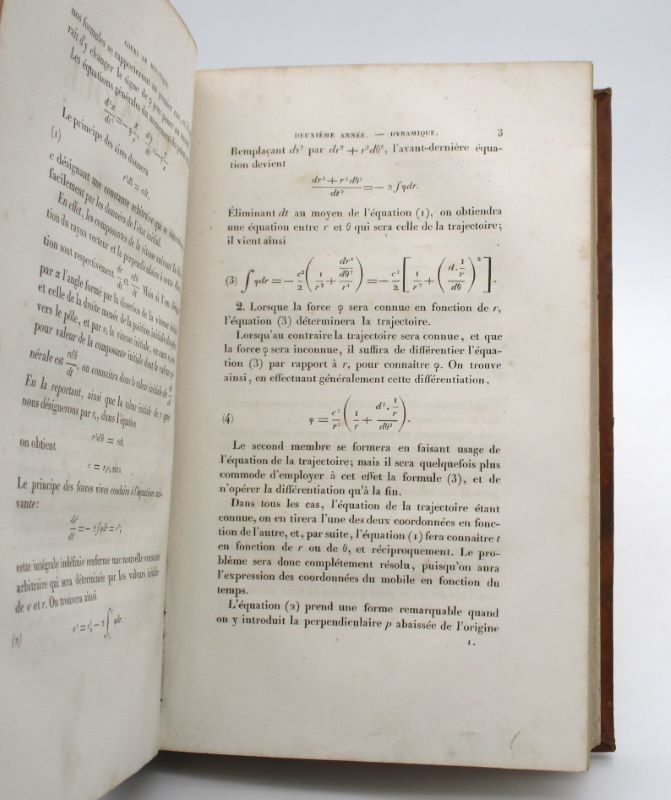 COURS DE MÉCANIQUE.
nos formules se rapporteront au premier cas, et il
rait d'y changer le signe de φ pour passer au
Les équations générales du mouvement
d²x/dt² = − φ x/r, d²y/dt² = − φ y/r.
Le principe des aires donnera
(1) r²dθ = cdt,
c désignant une constante arbitraire qui se déterminera
facilement par les données de l'état initial.
En effet, les composantes de la vitesse suivant la direc-
tion du rayon vecteur et la perpendiculaire à cette
tion sont respectivement dr/dt, rdθ/dt. Mais si l'on désigne
par α l'angle formé par la direction de la vitesse initiale
et celle de la droite menée de la position initiale du
vers le pôle, et par v₀ la vitesse initiale, on aura
pour valeur de la composante initiale dont la valeur gé-
nérale est rdθ/dt, on connaîtra donc la valeur initiale de dθ/dt
En la reportant, ainsi que la valeur initiale de r que
nous désignerons par r₀, dans l'équation
r²dθ = cdt,
on obtient
c = r₀v₀ sin α.
Le principe des forces vives conduit à l'équation sui-
vante:
ds²/dt² = − 2∫φdr = v²;
cette intégrale indéfinie renferme une nouvelle constante
arbitraire qui sera déterminée par les valeurs initiales
de v et r. On trouvera ainsi
(2) v² = v₀² − 2∫φdr.
DEUXIÈME ANNÉE. — DYNAMIQUE. 3
Remplaçant ds² par dr² + r²dθ², l'avant-dernière équa-
tion devient
(dr² + r²dθ²)/dt² = − 2∫φdr.
Éliminant dt au moyen de l'équation (1), on obtiendra
une équation entre r et θ qui sera celle de la trajectoire;
il vient ainsi
(3) ∫φdr = − c²/2 (1/r² + (dr²/dθ²)/r⁴) = − c²/2 [1/r² + (d.(1/r)/dθ)²].
2. Lorsque la force φ sera connue en fonction de r,
l'équation (3) déterminera la trajectoire.
Lorsqu'au contraire la trajectoire sera connue, et que
la force φ sera inconnue, il suffira de différentier l'équa-
tion (3) par rapport à r, pour connaître φ. On trouve
ainsi, en effectuant généralement cette différentiation,
(4) φ = c²/r² (1/r + d².(1/r)/dθ²).
Le second membre se formera en faisant usage de
l'équation de la trajectoire; mais il sera quelquefois plus
commode d'employer à cet effet la formule (3), et de
n'opérer la différentiation qu'à la fin.
Dans tous les cas, l'équation de la trajectoire étant
connue, on en tirera l'une des deux coordonnées en fonc-
tion de l'autre, et, par suite, l'équation (1) fera connaître t
en fonction de r ou de θ, et réciproquement. Le pro-
blème sera donc complétement résolu, puisqu'on aura
l'expression des coordonnées du mobile en fonction du
temps.
L'équation (2) prend une forme remarquable quand
on y introduit la perpendiculaire p abaissée de l'origine
1.